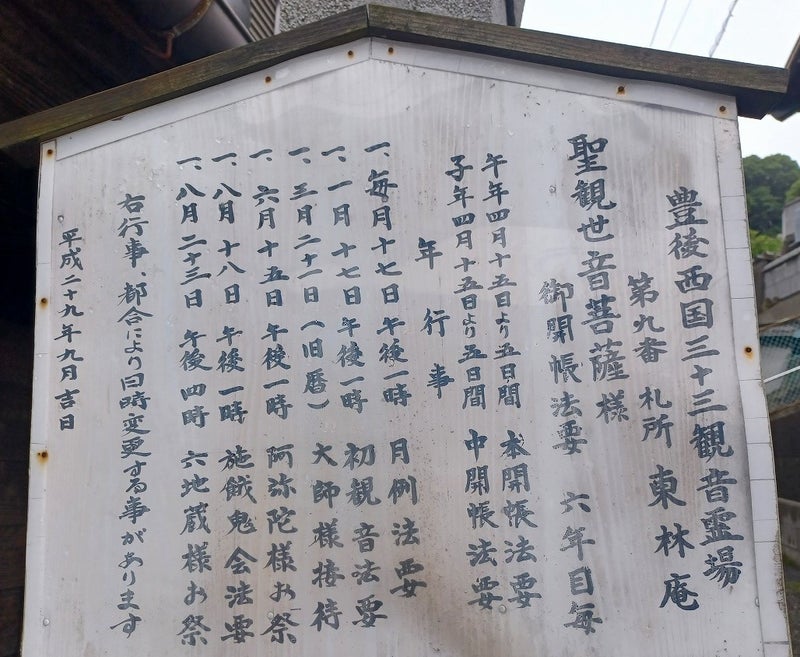 豊後西国三十三観音霊場
第九番 札所 東林庵
聖観世音菩薩様
御開帳法要 六年目毎
午年四月十五日より五日間 本開帳法要
子年四月十五日より五日間 中開帳法要
年行事
一、毎月十七日 午後一時 月例法要
一、一月十七日 午後一時 初観音法要
一、三月二十一日(旧暦) 大師様接待
一、六月十五日 午後一時 阿弥陀様お祭
一、八月十八日 午後一時 施餓鬼会法要
一、八月二十三日 午後四時 六地蔵様お祭
右行事、都合により日時変更する事があります
平成二十九年九月吉日